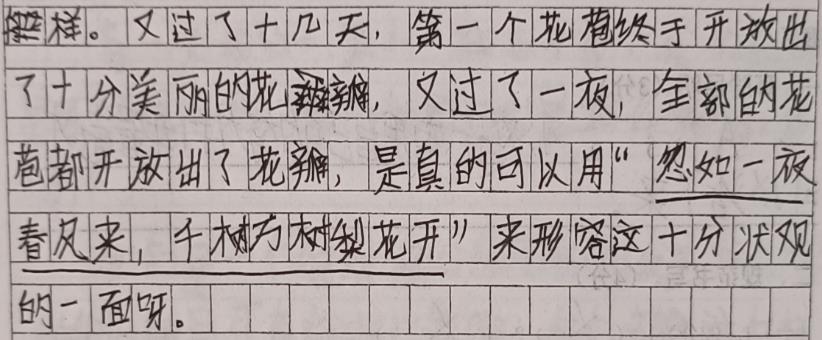 样。又过了十几天，第一个花苞终于开放出
了十分美丽的花瓣，又过了一夜，全部的花
苞都开放出了花瓣，是真的可以用“忽如一夜
春风来，千树万树梨花开”来形容这十分状观
的一面呀。